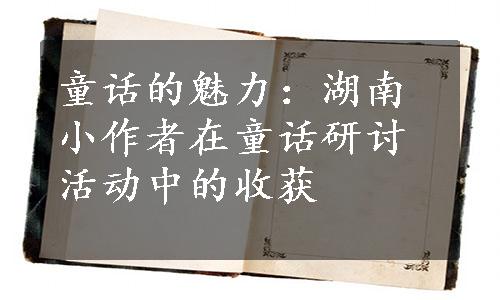 童话的魅力：湖南
小作者在童话研讨
活动中的收获